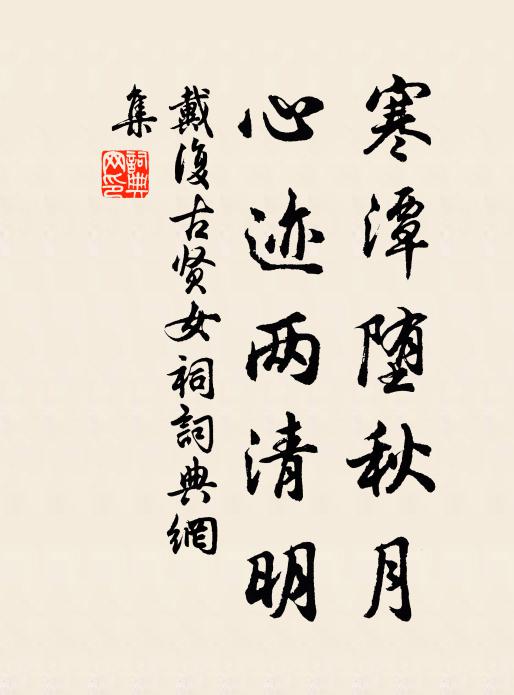 寒潭堕秋月
心迹两清明
戴復古贤女祠詞典網
集
詞典网印